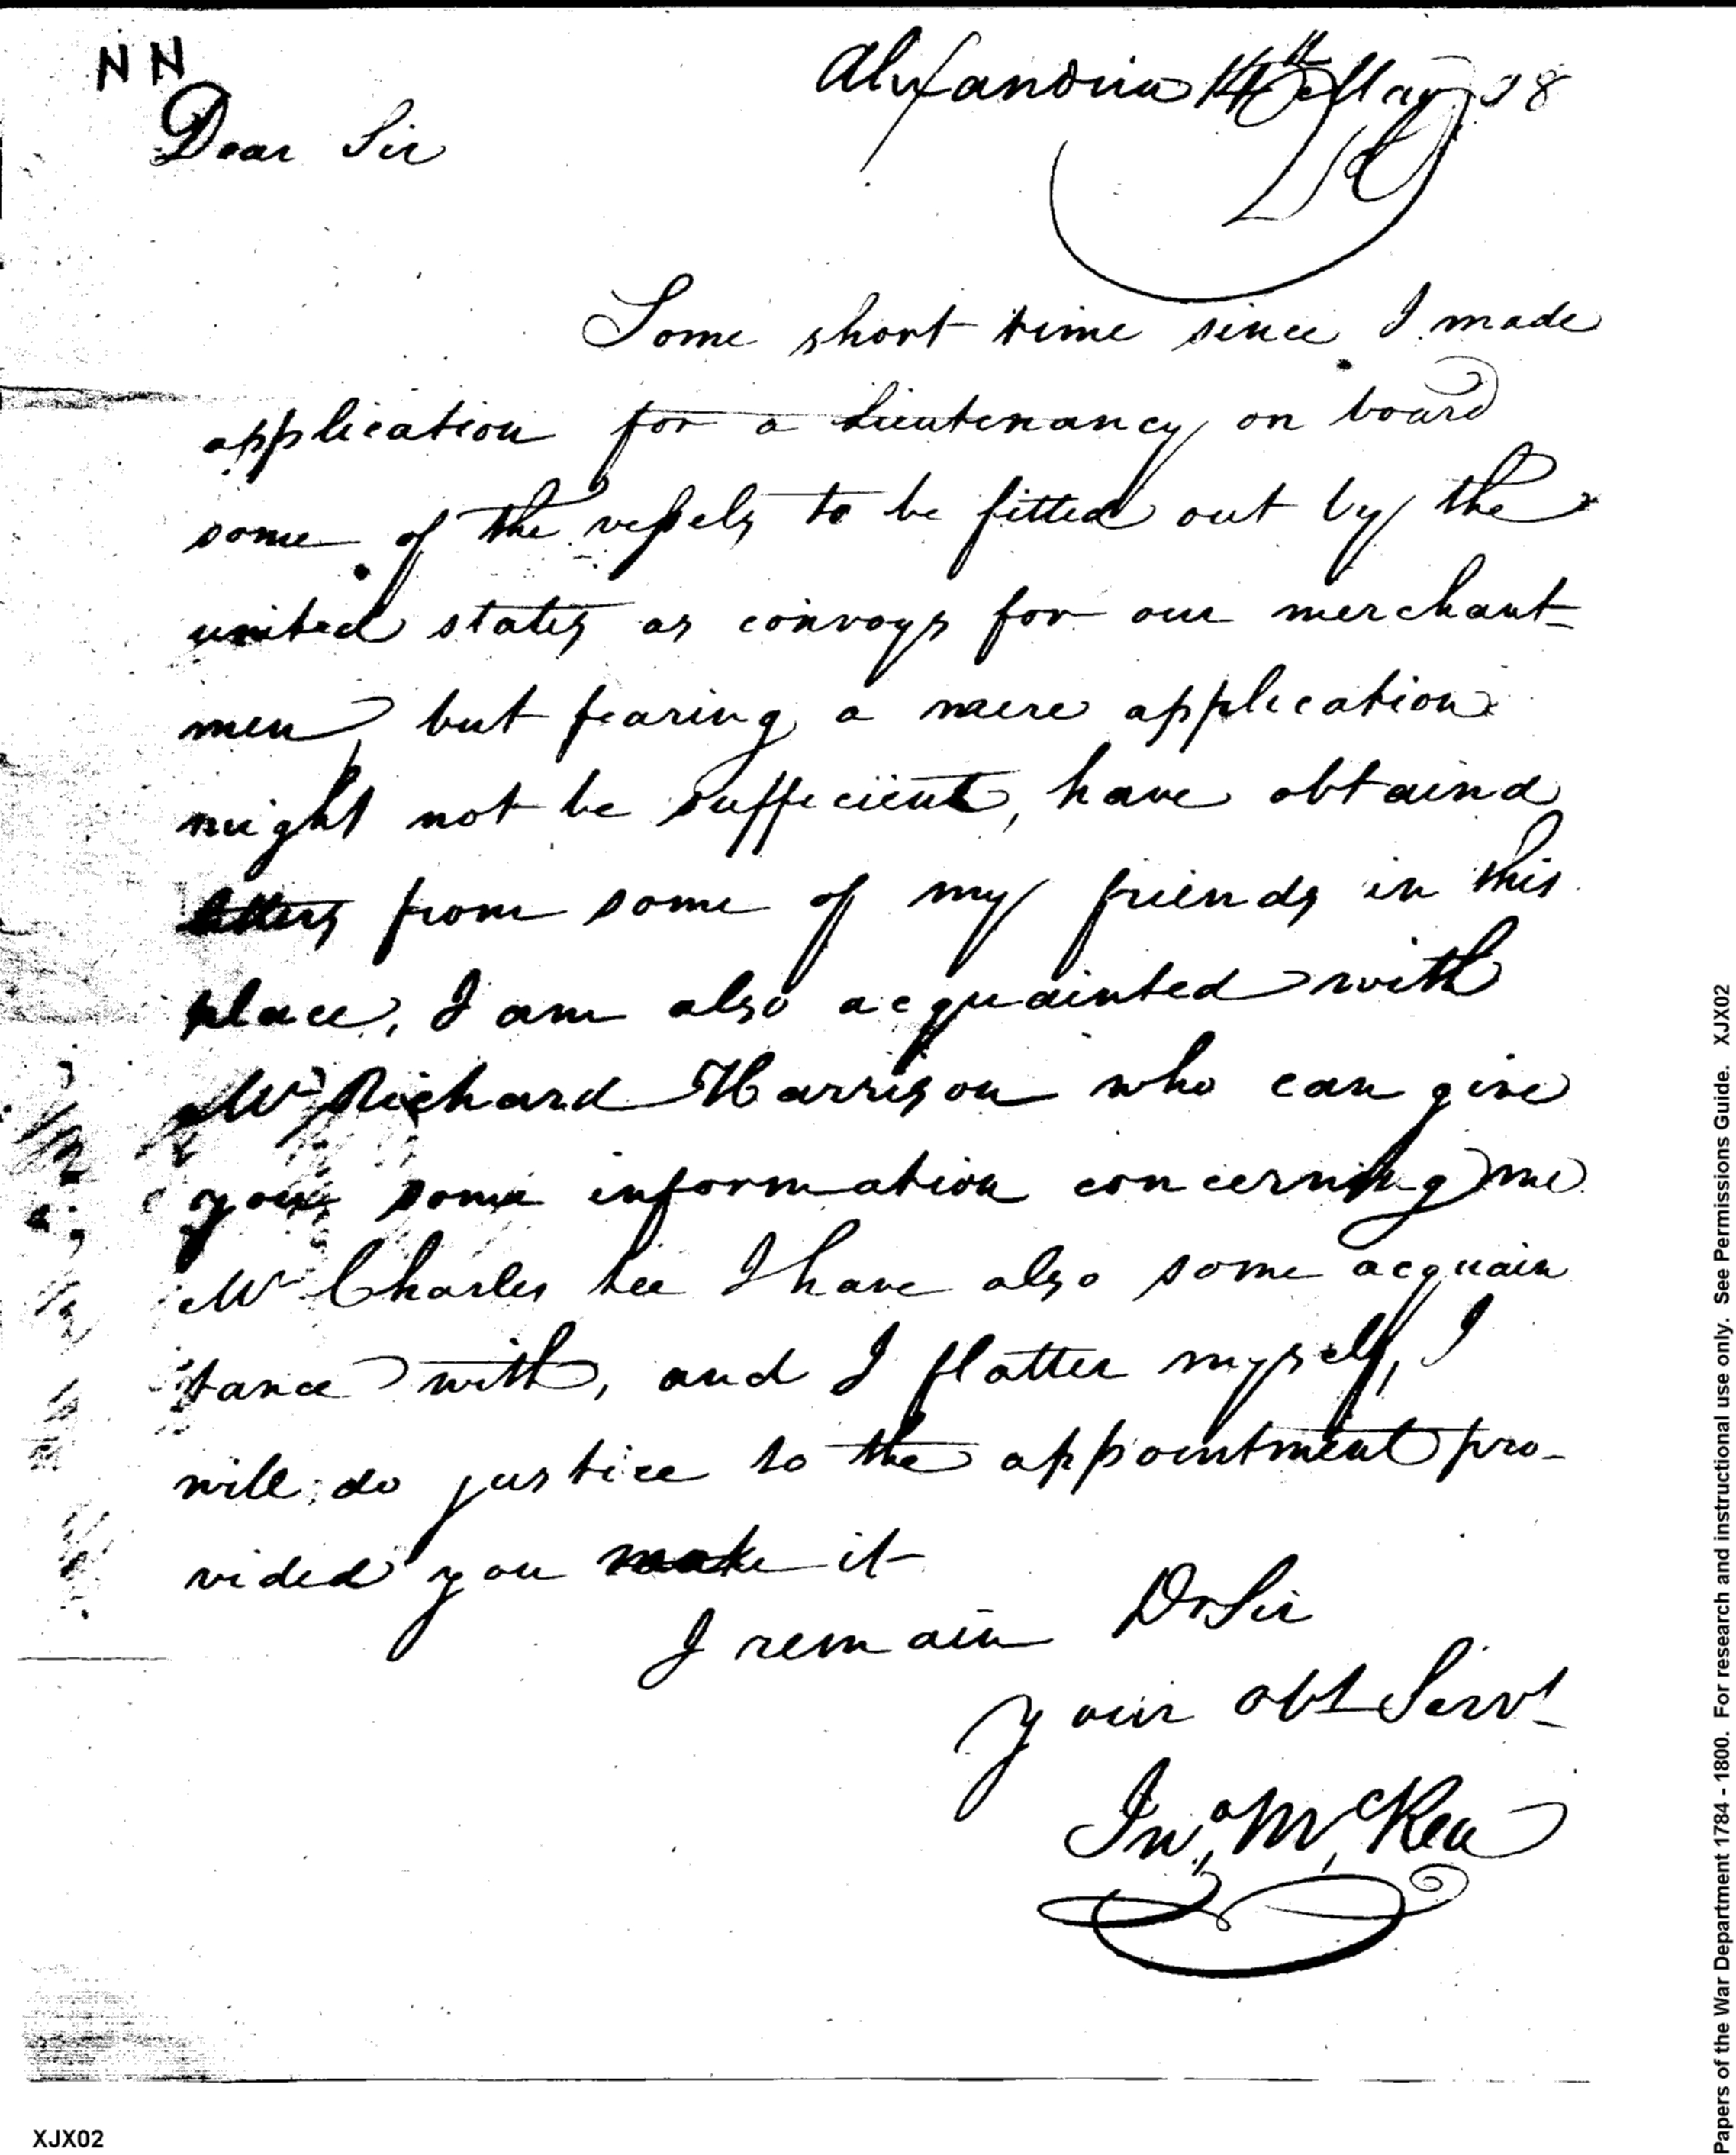 NN
Alexandria 14th May 98
Dear Sir
Some short time since I made
application for a Lieutenancy on board
some of the vessels to be fitted out by the
united states as convoys for our merchant-
men, but fearing a mere application
might not be sufficient, have obtaind
letters from some of my friends in this
place, I am also acquainted with
Mr Richard Harrison who can give
you some information concerning me
Mr Charles Lee I have also some acquain
tance with, and I flatter myself, I
will do justice to the appointment pro-
vided you make it
I remain Dr Sir
Your obt Servt
Jno, McRea
XJX02
Papers of the War Department 1784 - 1800. For research and instructional use only. See Permissions Guide. XJX02